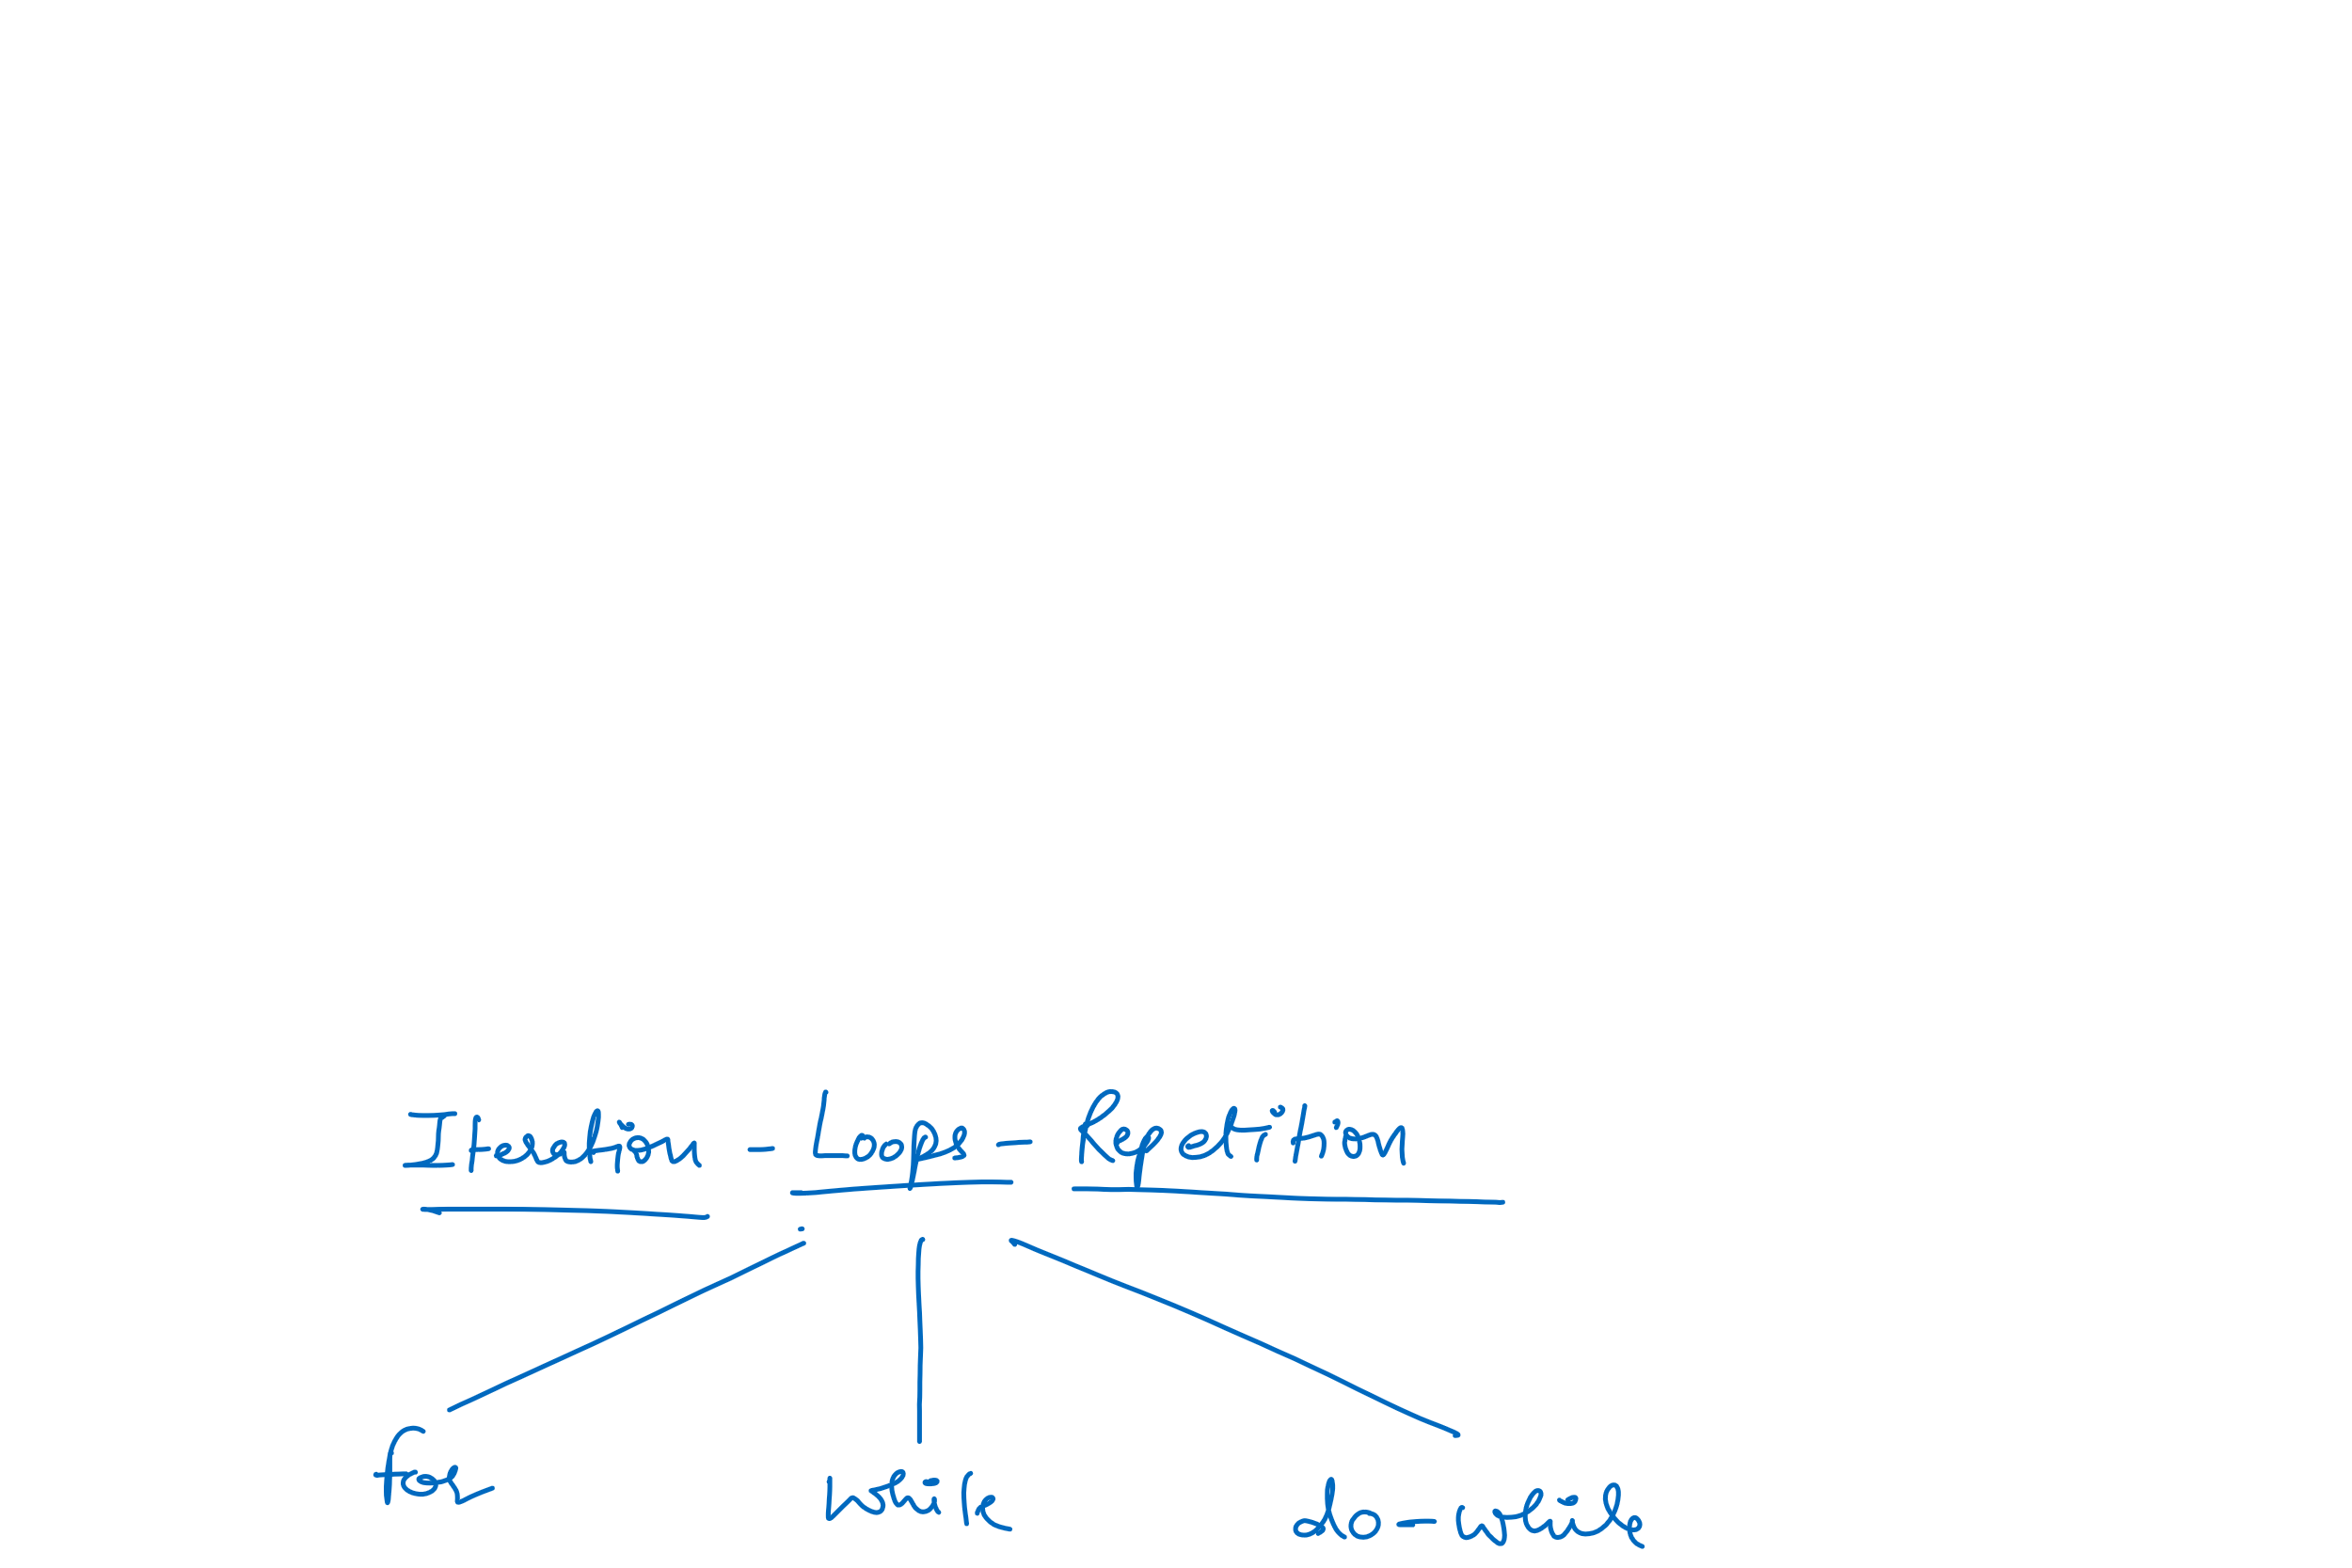 Iteration - Loops - Repetition
for
while
do-while